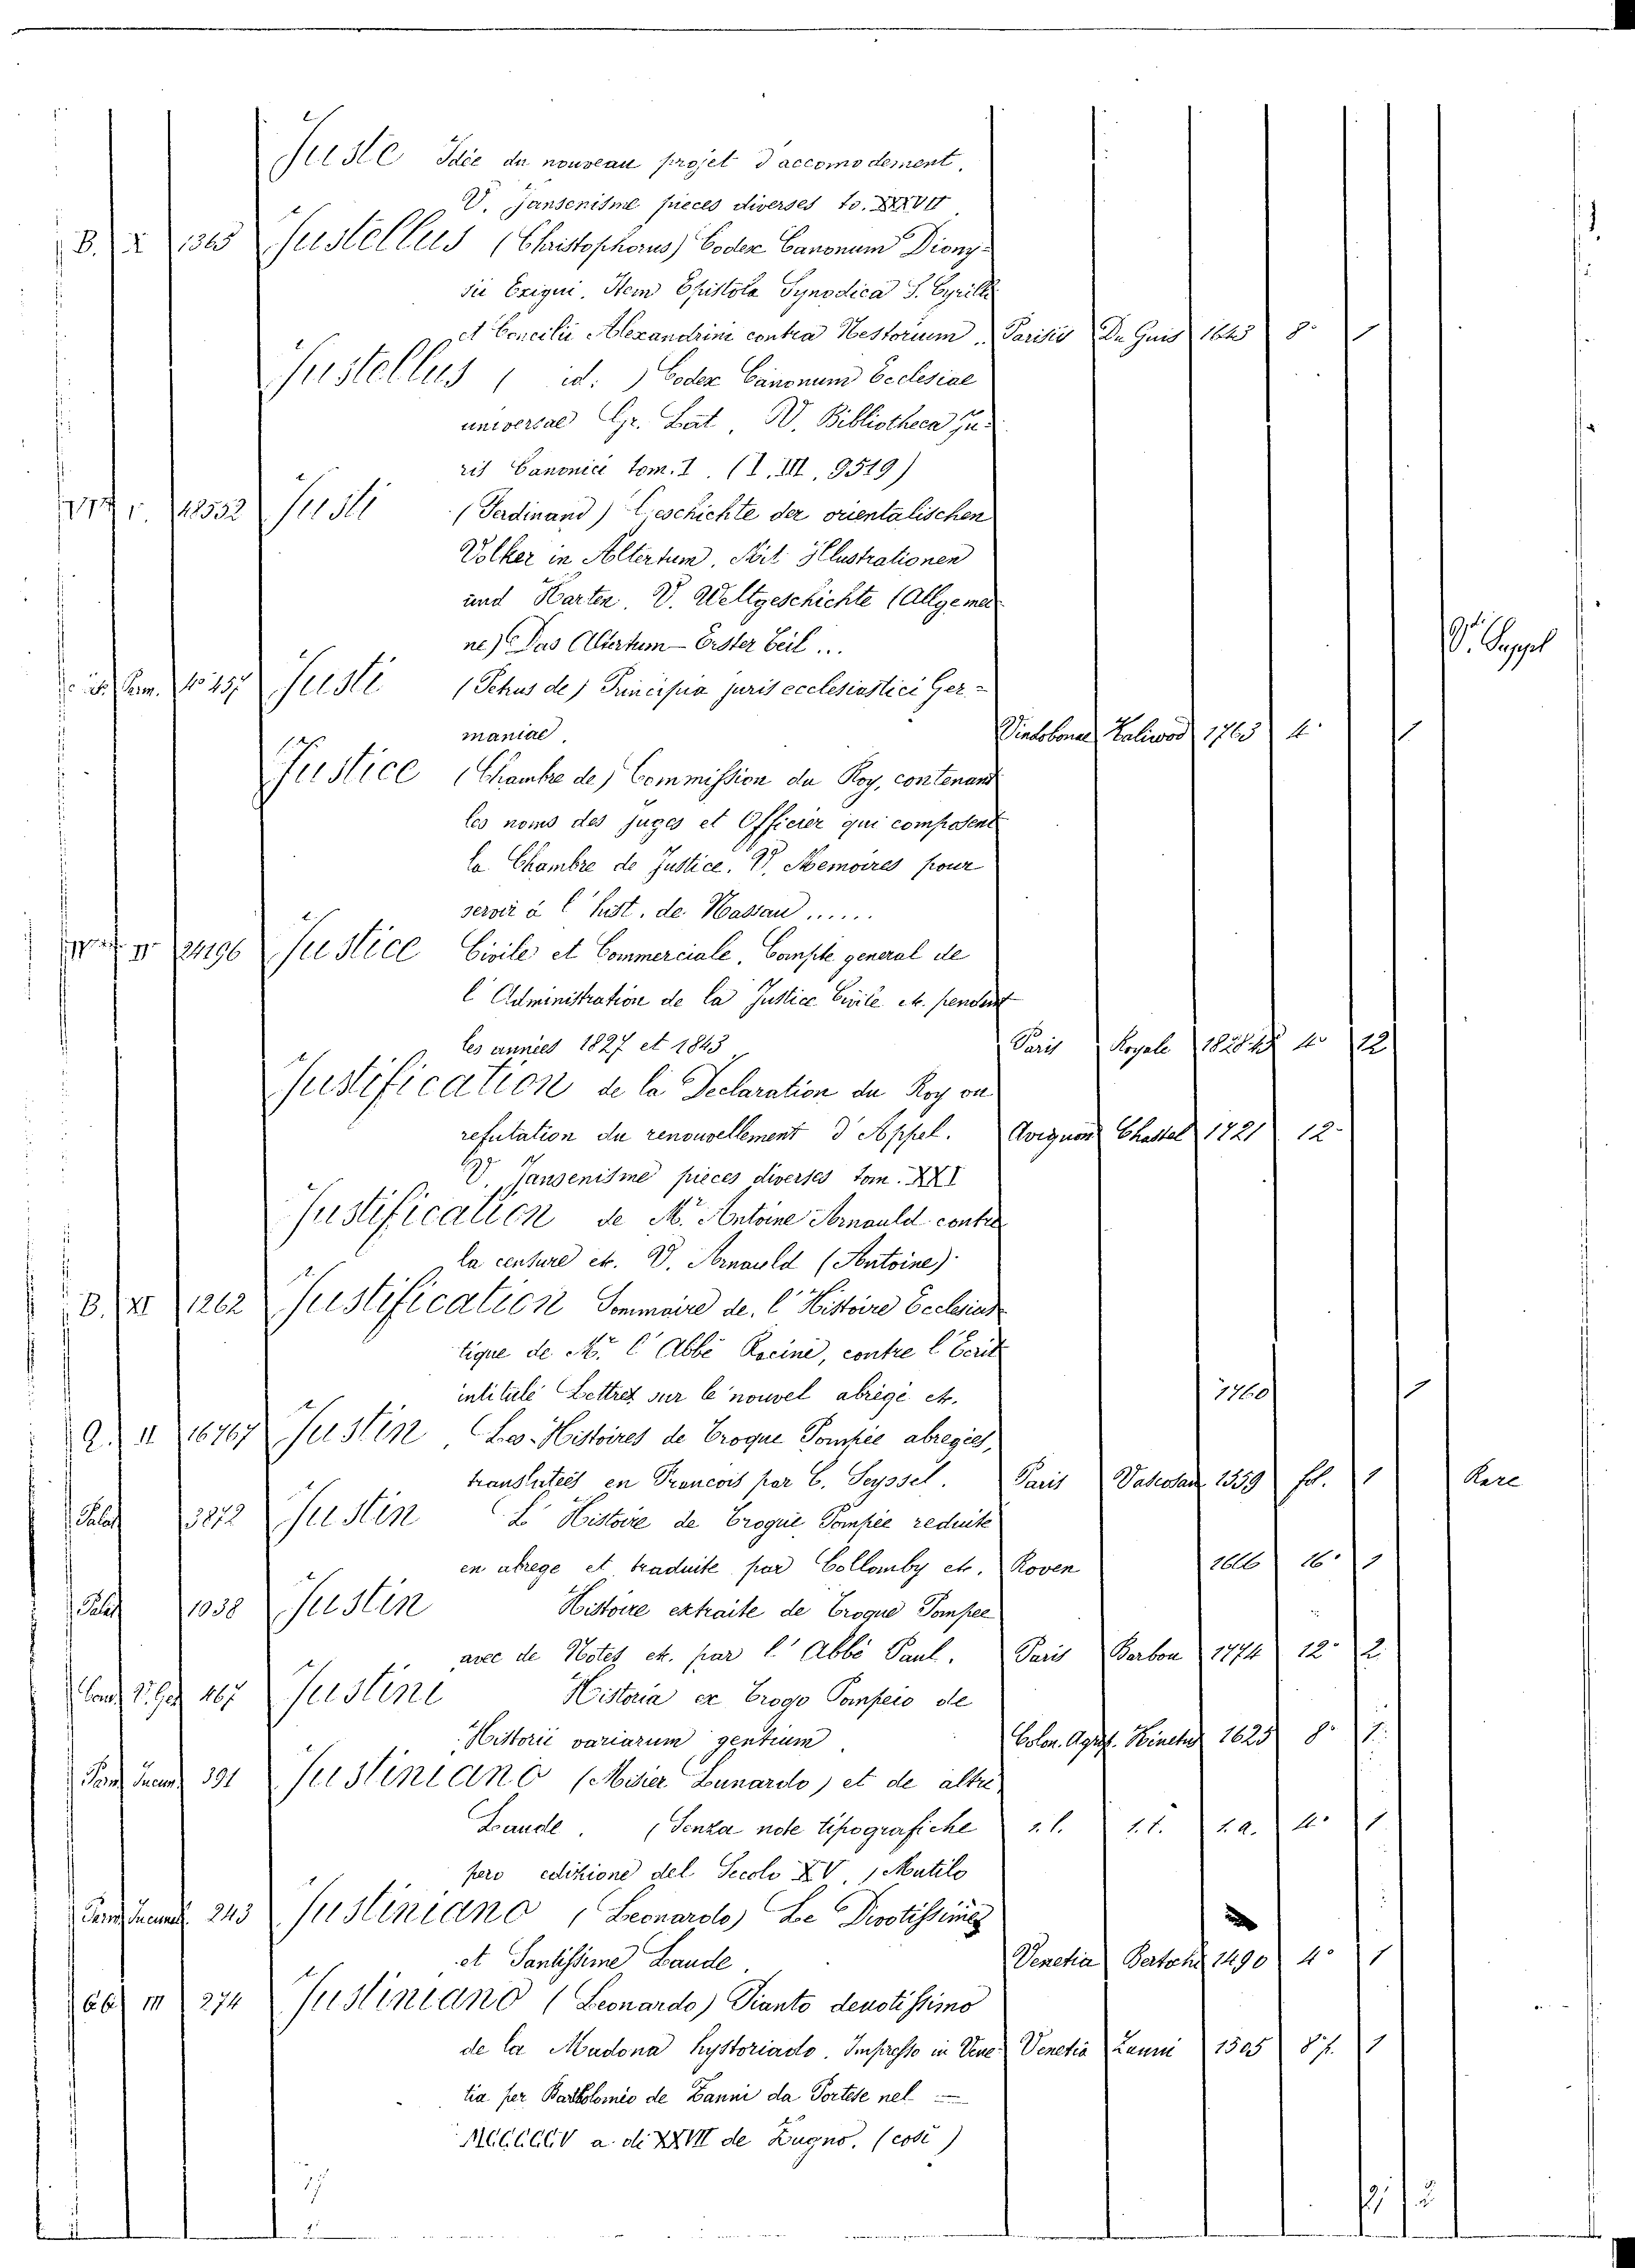 Juste Idée du nouveau projet d'accomodement.
V. Jansenisme pieces diverses to. XXXVII
B. X 1365 Justellus (Christophorus) Codex Canonum Diony-
sii Exigui. Item Epistola Synodica S. Cyrilli
et Concilii Alexandrini contra Nestorium. Parisiis Du Guis 1643 8° 1
Justellus ( id. ) Codex Canonum Ecclesiae
universae Gr. Lat. V. Bibliotheca Ju-
ris Canonici tom. I. (I. III. 9519)
48552 Justi (Ferdinand) Geschichte der orientalischen
Volker in Altertum. Mit Illustrationen
und Karten. V. Weltgeschichte (Allgemei-
ne) Das Altertum - Erster Teil...
V. Suppl
Justi (Schus de) Principia juris ecclesiastici Ger-
maniae. Vindobonae Kaliwod 1763 4° 1
Justice (Chambre de) Commission du Roy, contenant
les noms des juges et Officier qui composent
la Chambre de Justice. V. Memoires pour
servir à l'hist. de Nassau ......
24196 Justice Civile et Commerciale. Compte general de
l'Administration de la Justice Civile etc. pendent
les années 1827 et 1843 Paris Royale 1828 48 4° 12
Justification de la Declaration du Roy ou
refutation du renouvellement d'Appel. Avignon Chastel 1721 12°
V. Jansenisme pièces diverses tom. XXI
Justification de Mr. Antoine Arnauld contre
la censure etc. V. Arnauld (Antoine)
B. XI 1262 Justification Sommaire de l'Histoire Ecclesias-
tique de Mr. l'Abbé Racine, contre l'Ecrit
intitulé Lettres sur le nouvel abrégé etc. 1760 1
Q. II 16767 Justin, Les Histoires de Troque Pompée abregées,
translatées en Francois par C. Seyssel. Paris Vascosan 1559 fol. 1 Rare
Palat 3872 Justin L'Histoire de Troque Pompée reduite
en abrege et traduite par Collomby etc. Roven 1666 16° 1
Palat 1038 Justin Histoire extraite de Troque Pompee
avec de Notes etc. par l'Abbé Paul. Paris Barbou 1774 12° 2
467 Justini Historia ex Trogo Pompeio de
Historii variarum gentium Colon. Agrip. Hinctus 1625 8° 1
391 Justiniano (Misier Lunardo) et de altri
Laude. (Senza note tipografiche s. l. s. t. s. a. 4° 1
pero edizione del Secolo XV, Mutilo
243 Justiniano (Leonardo) Le Divotissime
et Santissime Laude. Venetia Bertochi 1490 4° 1
III 274 Justiniano (Leonardo) Pianto devotissimo
de la Madona hystoriado. Impresso in Vene- Venetia Zanni 1505 8° f. 1
tia per Bartholomio de Zanni da Portese nel
MCCCCCV a di XXVII de Zugno. (così)